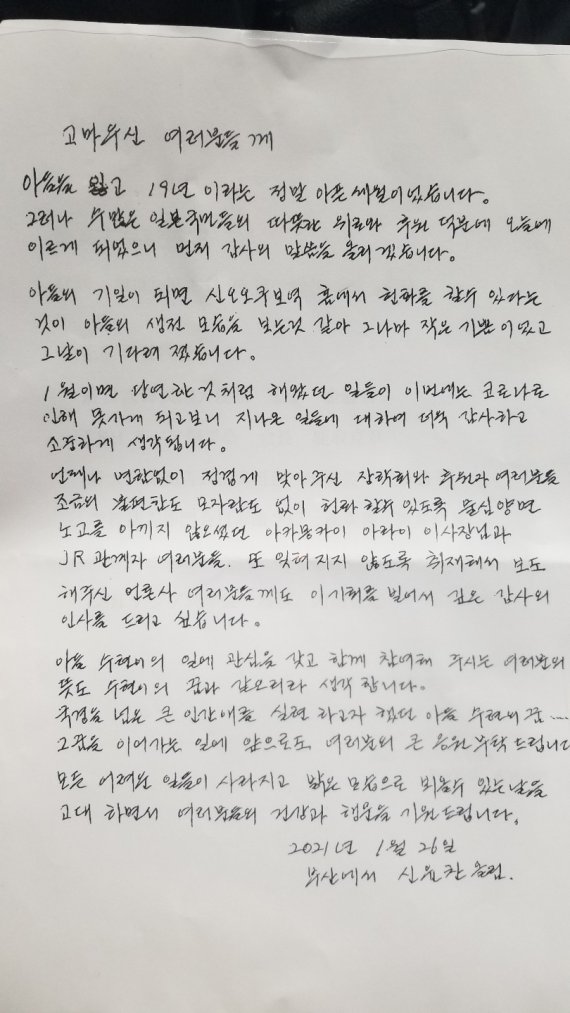 고마우신 여러분들께
아들을 잃고 19년 이라는 정말 아픈세월이었습니다.
그러나 수많은 일본국민들의 따뜻한 위로와 후원 덕분에 오늘에
이르게 되었으니 먼저 감사의 말씀을 올리겠습니다.
아들의 기일이 되면 신오오쿠보역 홈에서 헌화를 할수 있다는
것이 아들의 생전 모습을 보는것 같아 그나마 작은 기쁨이었고
그날이 기다려 졌습니다.
1월이면 당연한것처럼 해왔던 일들이 이번에는 코로나로
인해 못가게 되고보니 지나온 일들에 대하여 더욱 감사하고
소중하게 생각됩니다.
언제나 변함없이 정겹게 맞아주신 장학회와 후원자 여러분들
조금의 불편함도 모자람도 없이 헌화 할수 있도록 물심양면
노고를 아끼지 않으셨던 아카몽카이 아라이 이사장님과
JR 관계자 여러분들. 또 잊혀지지 않도록 취재해서 보도
해주신 언론사 여러분들께도 이기회를 빌어서 깊은 감사의
인사를 드리고 싶습니다.
아들 수현이의 일에 관심을 갖고 함께 참여해 주시는 여러분의
뜻도 수현이의 꿈과 같으리라 생각 합니다.
국경을 넘은 큰 인간애를 실현 하고자 했던 아들 수현의 꿈....
그꿈을 이어가는 일에 앞으로도 여러분의 큰 응원 부탁 드립니다
모든 어려운 일들이 사라지고 밝은 모습으로 뵈올수 있는날을
고대 하면서 여러분들의 건강과 행운을 기원드립니다.
2021년 1월 26일
부산에서 신윤찬 올림.